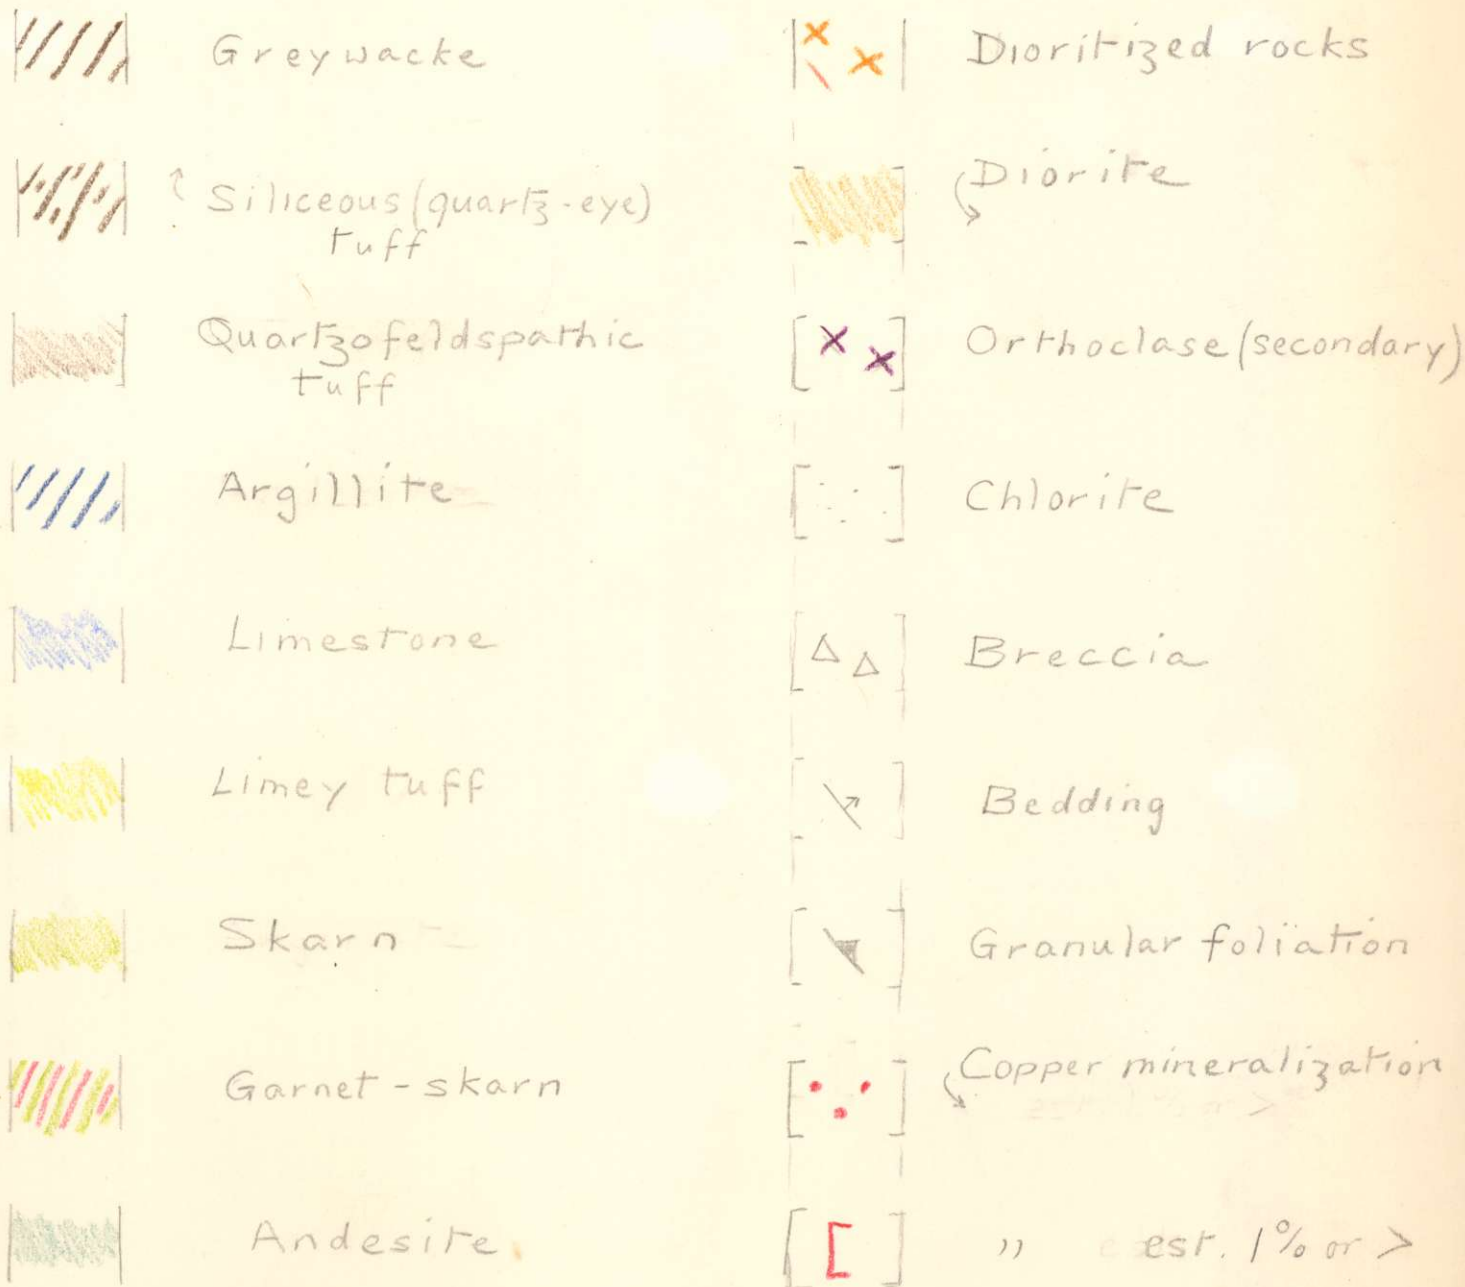 Greywacke
Siliceous (quartz-eye)
tuff
Quartzofeldspathic
tuff
Argillite
Limestone
Limey tuff
Skarn
Garnet-skarn
Andesite
Dioritized rocks
Diorite
Orthoclase (secondary)
Chlorite
Breccia
Bedding
Granular foliation
Copper mineralization
" est. 1% or >